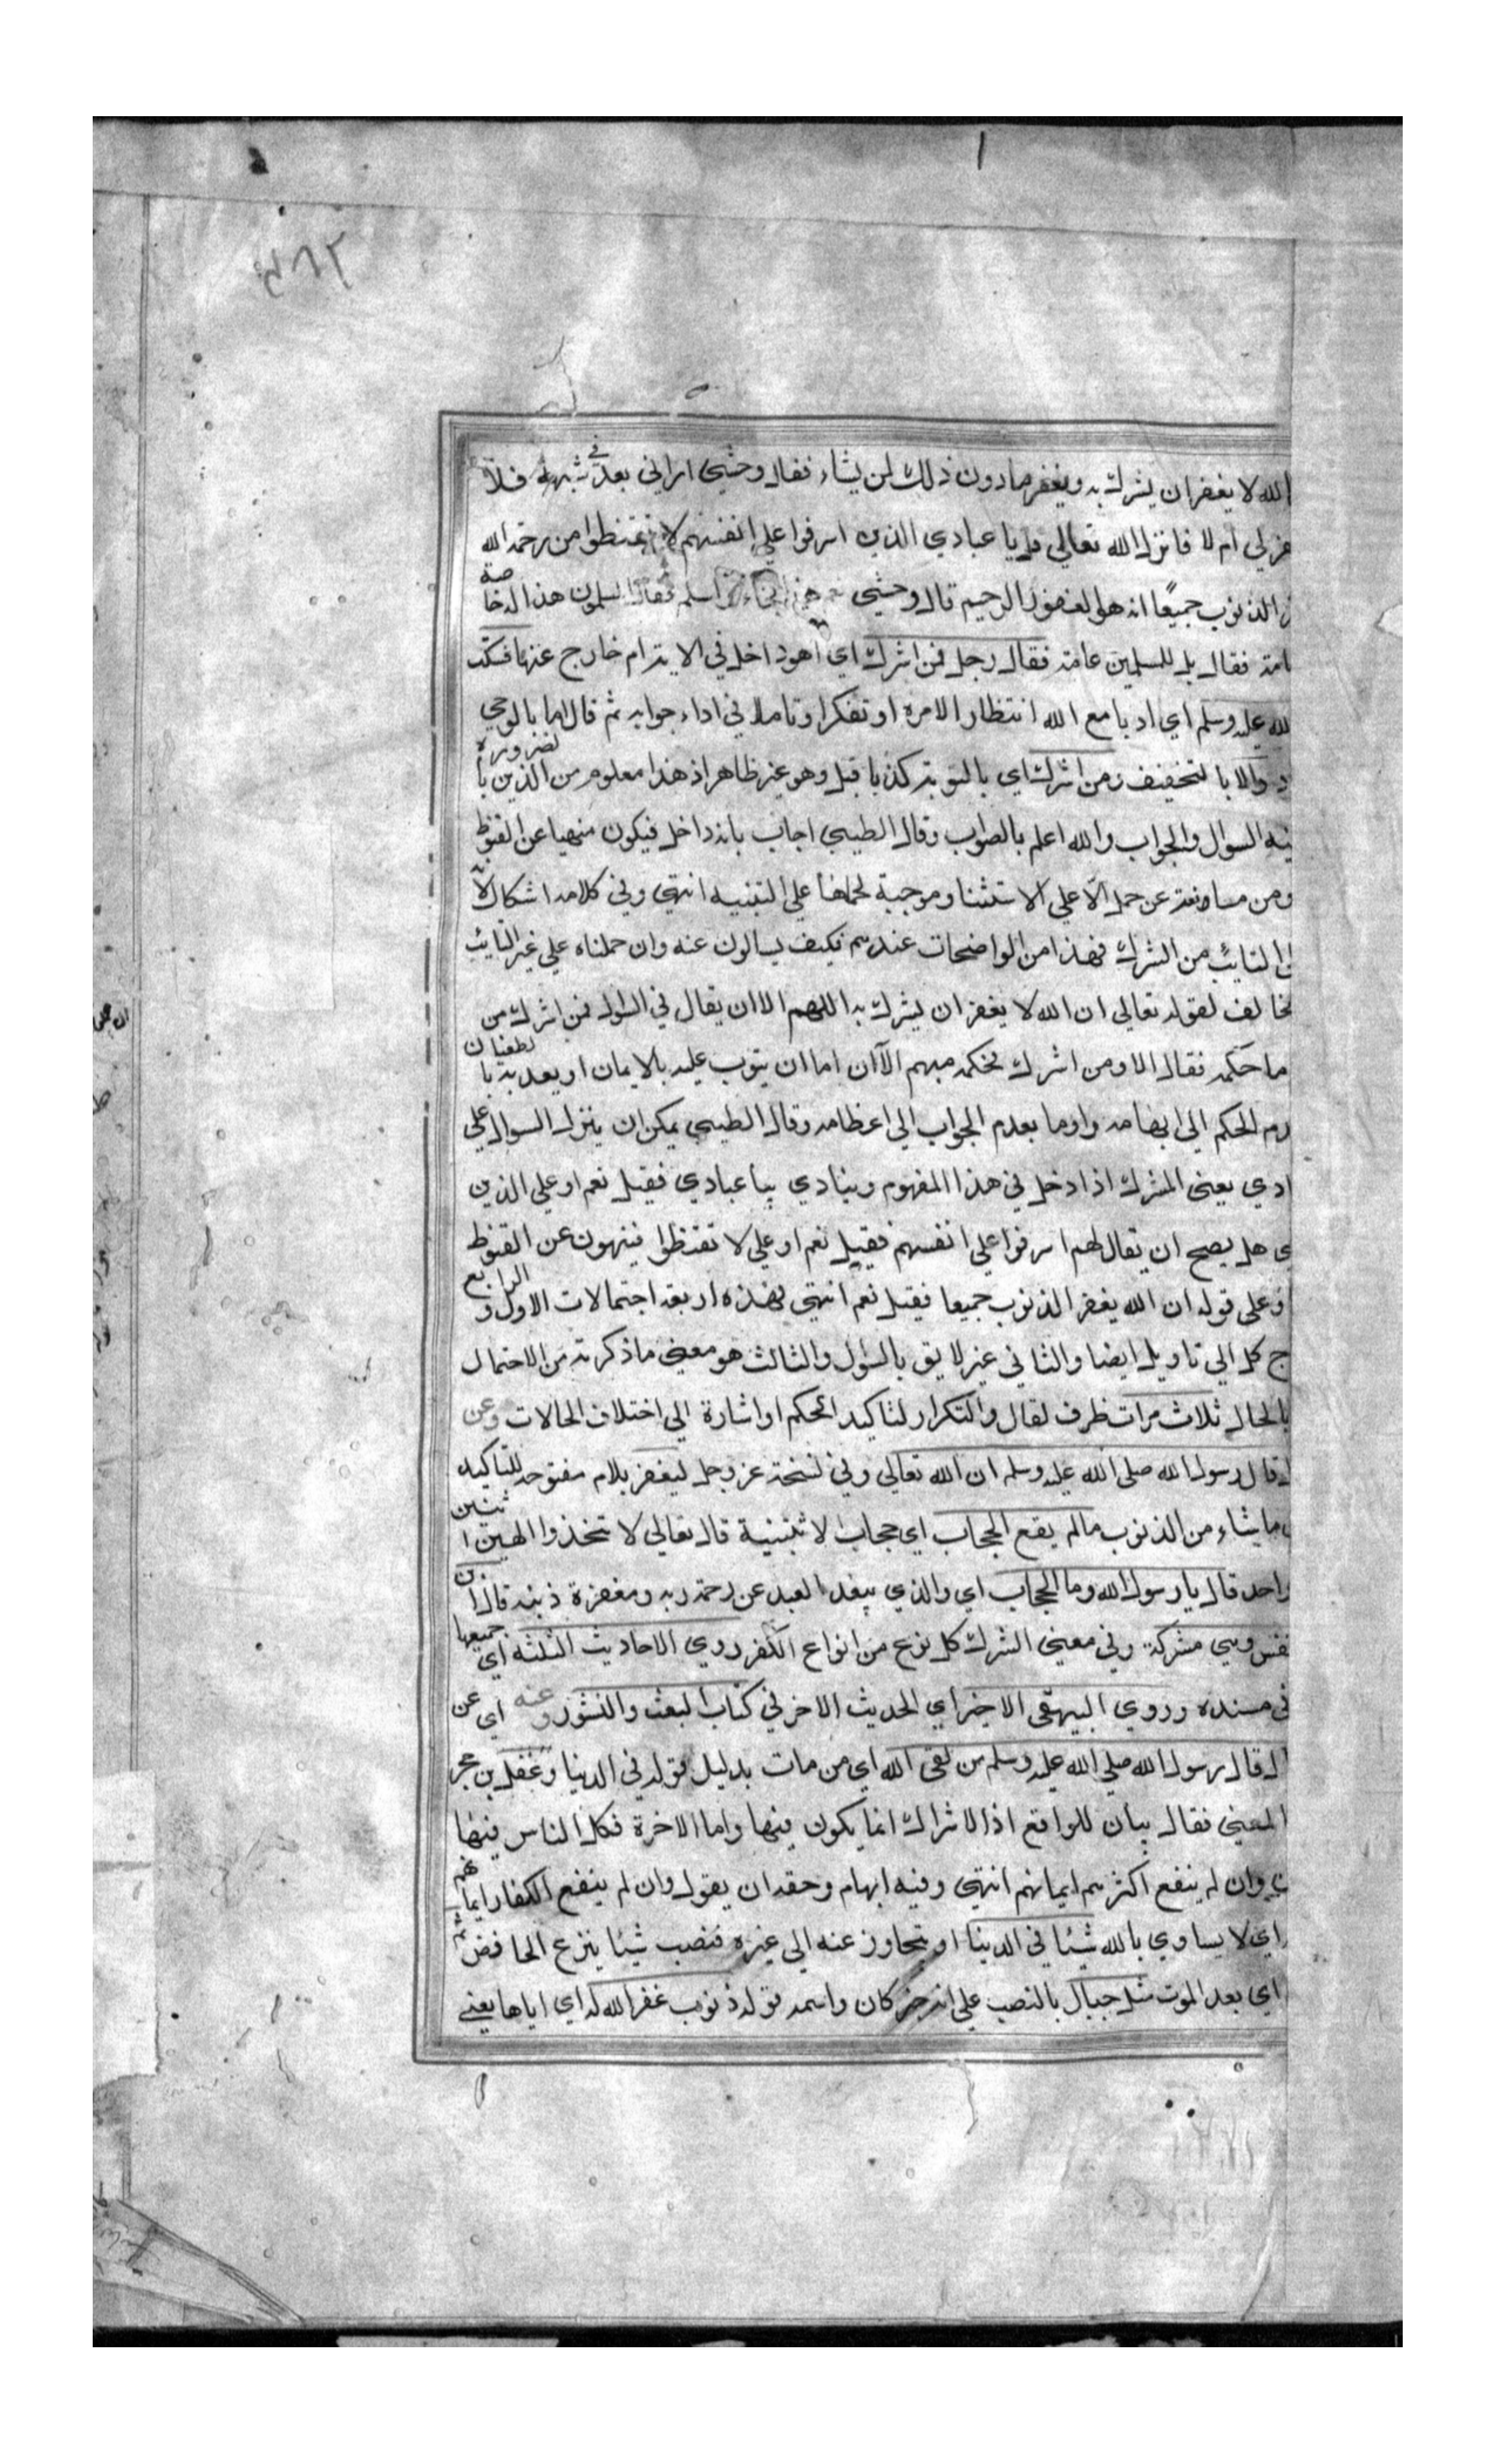 الله لا يغفر ان يشرك به ويغفر مادون ذلك لمن يشاء فقال وحشي اراني بعد في شبهة فلا
لي ام لا فانزل الله تعالي قل يا عبادي الذين اسرفوا علي انفسهم لا تقنطوا من رحمة الله
الذنوب جميعا انه هو الغفور الرحيم قال وحشي نعم هذا فجاء اسلم فقال المسلمون هذا له خاصة
فقال بل للمسلمين عامة فقال رجل فمن اشرك اي اهو داخل في الاية ام خارج عنها فسكت
الله عليه وسلم اي ادبا مع الله انتظارا لامره او تفكرا وتاملا في اداء جوابه ثم قال اما بالوحي
والا بالتخفيف ومن اشرك اي بالتوبة كذا قيل وهو غير ظاهر اذ هذا معلوم من الدين بالضرورة
السوال والجواب والله اعلم بالصواب وقال الطيبي اجاب بانه داخل فيكون منهيا عن القنوط
ومن مانعة عن حمل الا علي الاستثنا وموجبة لحملها علي التنبيه انتهي وفي كلامه اشكال لان
التايب من الشرك فهذا من الواضحات عندهم فكيف يسالون عنه وان حملناه علي غير التايب
مخالف لقوله تعالي ان الله لا يغفر ان يشرك به اللهم الا ان يقال في السوال فمن اشرك من
ما حكمه فقال الا ومن اشرك فحكمه مبهم الآن اما ان يتوب عليه بالايمان او يعذبه بالطغيان
الحكم الي ابهامه واوما بعدم الجواب الي اعظامه وقال الطيبي يمكن ان ينزل السوال علي
ادي يعني المشرك اذا دخل في هذا المفهوم وينادي بيا عبادي فقيل نعم او علي الذين
هل يصح ان يقال لهم اسرفوا علي انفسهم فقيل نعم او علي لا تقنطوا فينهون عن القنوط
وعلي قوله ان الله يغفر الذنوب جميعا فقيل نعم انتهي فهذه اربعة احتمالات الاول والرابع
ج كل الي تاويل ايضا والثاني غير لايق بالسوال والثالث هو معني ما ذكرته من الاحتمال
بالحال ثلاث مرات ظرف لقال والتكرار لتاكيد الحكم او اشارة الي اختلاف الحالات وعن
قال رسول الله صلي الله عليه وسلم ان الله تعالي وفي نسخة عز وجل ليغفر بلام مفتوحة للتاكيد
ما شاء من الذنوب مالم يقع الحجاب اي حجاب الاثنينية قال تعالي لا تتخذوا الهين اثنين
واحد قال يا رسول الله وما الحجاب اي والذي يبعد العبد عن رحمة ربه ومغفرة ذنبه قال ان
نفس وهي مشركة وفي معني الشرك كل نوع من انواع الكفر روي الاحاديث الثلثة اي جميعها
في مسنده وروي البيهقي الاخير اي الحديث الاخر في كتاب البعث والنشور وعنه اي عن
قال قال رسول الله صلي الله عليه وسلم من لقي الله اي من مات بدليل قوله في الدنيا وغفل بن حجر
المعني فقال بيان للواقع اذ الاشراك انما يكون فيها واما الاخرة فكل الناس فيها
وان لم ينفع اكثرهم ايمانهم انتهي وفيه ابهام وحقه ان يقول وان لم ينفع الكفار ايمانهم
اي لا يساوي بالله شيئا في الدنيا او يتجاوز عنه الي غيره فنصب شيئا بنزع الخافض ثم
اي بعد الموت مثل جبال بالنصب علي انه خبر كان واسمه قوله ذنوب غفر الله له اي اياها يعني